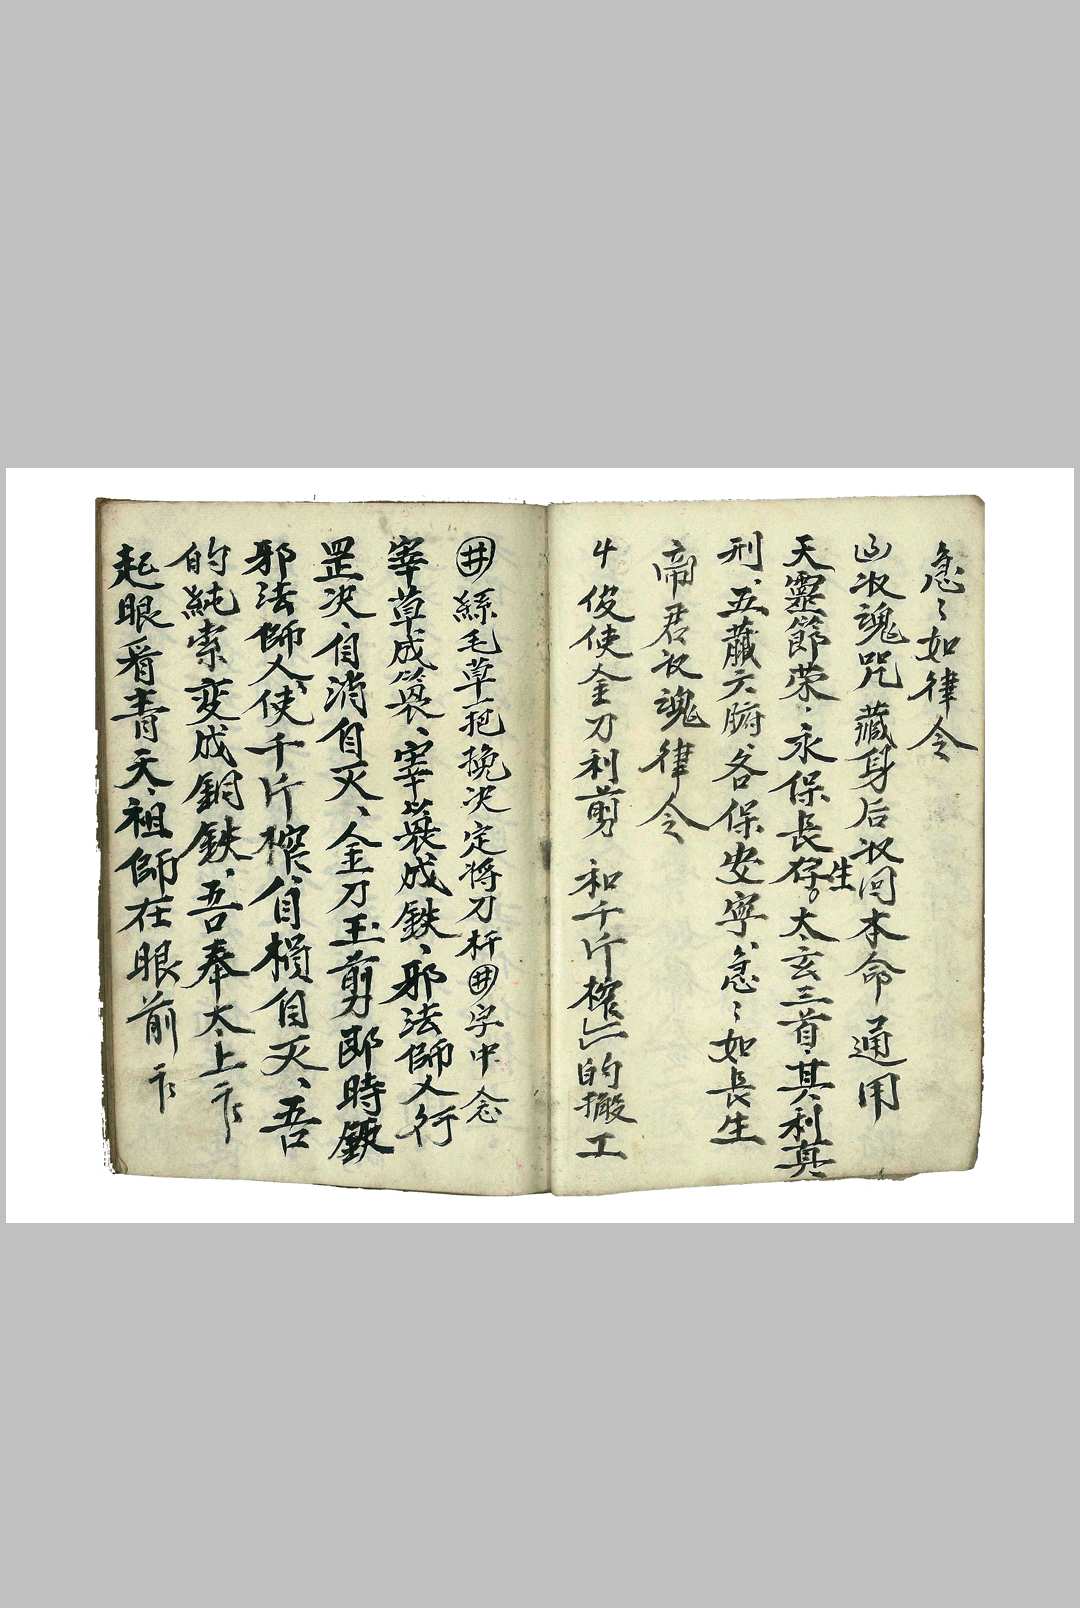 急〻如律令
収魂咒 藏身后収囘本命 通用
天靈節荣、永保長存。生太玄三首、其利真
刑、五藏六腑、各保安寕、急〻如長生
帝君収魂律令
廾俊使金刀利剪 和千斤榨的搬工
井 絲毛草一把挽决定將刀杆井字中 念
宰草成簑、宰簑成鉄、邪法師人行
罡决、自消自灭、金刀玉剪即時鍁
邪法師人使千斤榨、自損自灭、吾
的純索变成銅鉄、吾奉太上
起眼看青天、祖師在眼前